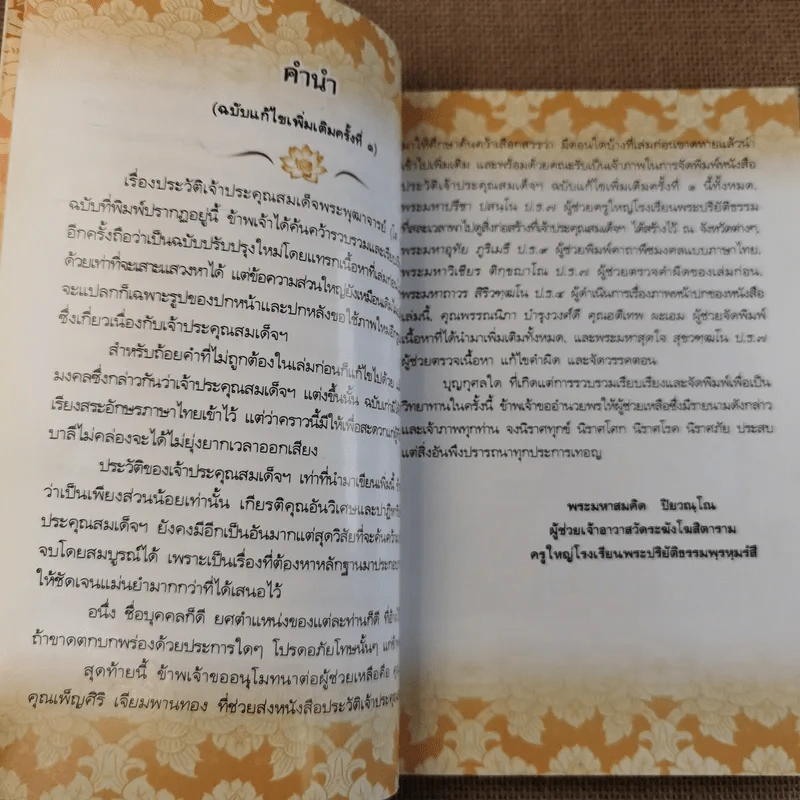 คำนำ
(ฉบับแก้ไขเพิ่มเติมครั้งที่ ๑)
เรื่องประวัติเจ้าประคุณสมเด็จพระพุฒาจารย์ (โต
ฉบับที่พิมพ์ปรากฏอยู่นี้ ข้าพเจ้าได้ค้นคว้ารวบรวมและเรียบ
อีกครั้งถือว่าเป็นฉบับปรับปรุงใหม่โดยแทรกเนื้อหาที่เล่มก่อน
ด้วยเท่าที่จะเสาะแสวงหาได้ แต่ข้อความส่วนใหญ่ยังเหมือนเดิม
จะแปลกก็เฉพาะรูปของปกหน้าและปกหลังขอใช้ภาพใหม่อีก
ซึ่งเกี่ยวเนื่องกับเจ้าประคุณสมเด็จฯ
สำหรับถ้อยคำที่ไม่ถูกต้องในเล่มก่อนก็แก้ไขไปด้วย
มงคลซึ่งกล่าวกันว่าเจ้าประคุณสมเด็จฯ แต่งขึ้นนั้น ฉบับเก่ามิได้
เรียงสระอักษรภาษาไทยเข้าไว้ แต่ว่าคราวนี้มีให้เพื่อสะดวกแก่ผู้
บาลีไม่คล่องจะได้ไม่ยุ่งยากเวลาออกเสียง
ประวัติของเจ้าประคุณสมเด็จฯ เท่าที่นำมาเขียนเพิ่มนี้
ว่าเป็นเพียงส่วนน้อยเท่านั้น เกียรติคุณอันวิเศษและปาฏิหาริย์
ประคุณสมเด็จฯ ยังคงมีอีกเป็นอันมากแต่สุดวิสัยที่จะค้นคว้า
จบโดยสมบูรณ์ได้ เพราะเป็นเรื่องที่ต้องหาหลักฐานมาประกอบ
ให้ชัดเจนแม่นยำมากกว่าที่ได้เสนอไว้
อนึ่ง ชื่อบุคคลก็ดี ยศตำแหน่งของแต่ละท่านก็ดี ที่อ้าง
ถ้าขาดตกบกพร่องด้วยประการใดๆ โปรดอภัยโทษนั้นๆ แก่ข้าพ
สุดท้ายนี้ ข้าพเจ้าขออนุโมทนาต่อผู้ช่วยเหลือคือ
คุณเพ็ญศิริ เจียมพานทอง ที่ช่วยส่งหนังสือประวัติเจ้าประคุณ
มาให้ศึกษาค้นคว้าเลือกสรรว่า มีตอนใดบ้างที่เล่มก่อนขาดหายแล้วนำ
เข้าไปเพิ่มเติม และพร้อมด้วยคณะรับเป็นเจ้าภาพในการจัดพิมพ์หนังสือ
ประวัติเจ้าประคุณสมเด็จฯ ฉบับแก้ไขเพิ่มเติมครั้งที่ ๑ นี้ทั้งหมด,
พระมหาปรีชา ปสนฺโน ป.ธ.๗ ผู้ช่วยครูใหญ่โรงเรียนพระปริยัติธรรม
ที่สละเวลาพาไปดูสิ่งก่อสร้างที่เจ้าประคุณสมเด็จฯ ได้สร้างไว้ ณ จังหวัดต่างๆ,
พระมหาอุทัย ภูริเมธี ป.ธ.๙ ผู้ช่วยพิมพ์คาถาพืชมงคลแบบภาษาไทย,
พระมหาวิเชียร ติกฺขญาโณ ป.ธ.๗ ผู้ช่วยตรวจคำผิดของเล่มก่อน,
พระมหาถาวร สิริวฑฺฒโน ป.ธ.๔ ผู้ดำเนินการเรื่องภาพหน้าปกของหนังสือ
เล่มนี้, คุณพรรณนิภา บำรุงวงศ์ดี คุณอติเทพ ผะเอม ผู้ช่วยจัดพิมพ์
เนื้อหาที่ได้นำมาเพิ่มเติมทั้งหมด, และพระมหาสุดใจ สุชวฑฺฒโน ป.ธ.๗
ผู้ช่วยตรวจเนื้อหา แก้ไขคำผิด และจัดวรรคตอน.
บุญกุศลใด ที่เกิดแต่การรวบรวมเรียบเรียงและจัดพิมพ์เพื่อเป็น
วิทยาทานในครั้งนี้ ข้าพเจ้าขออำนวยพรให้ผู้ช่วยเหลือซึ่งมีรายนามดังกล่าว
และเจ้าภาพทุกท่าน จงนิราศทุกข์ นิราศโศก นิราศโรค นิราศภัย ประสบ
แต่สิ่งอันพึงปรารถนาทุกประการเทอญ
พระมหาสมคิด ปิยวณฺโณ
ผู้ช่วยเจ้าอาวาสวัดระฆังโฆสิตาราม
ครูใหญ่โรงเรียนพระปริยัติธรรมพฺรหฺมรํสี